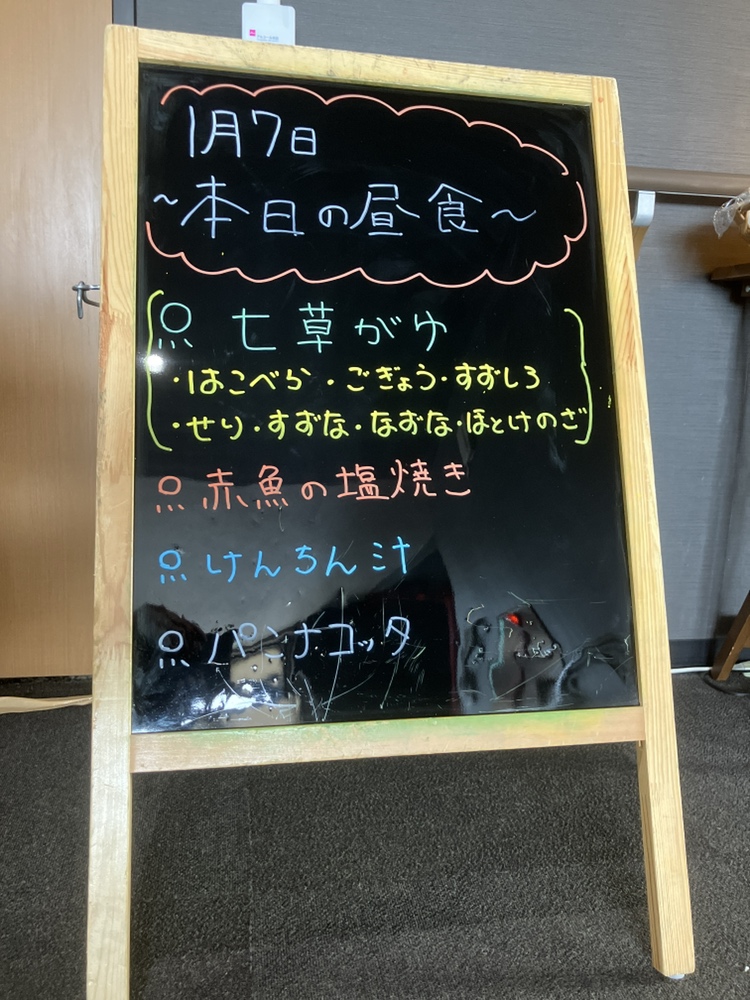 1月7日
~本日の昼食~
七草がゆ
・はこべら・ごぎょう・すずしろ
・せり・すずな・なずな・ほとけのざ
赤魚の塩焼き
けんちん汁
パンナコッタ